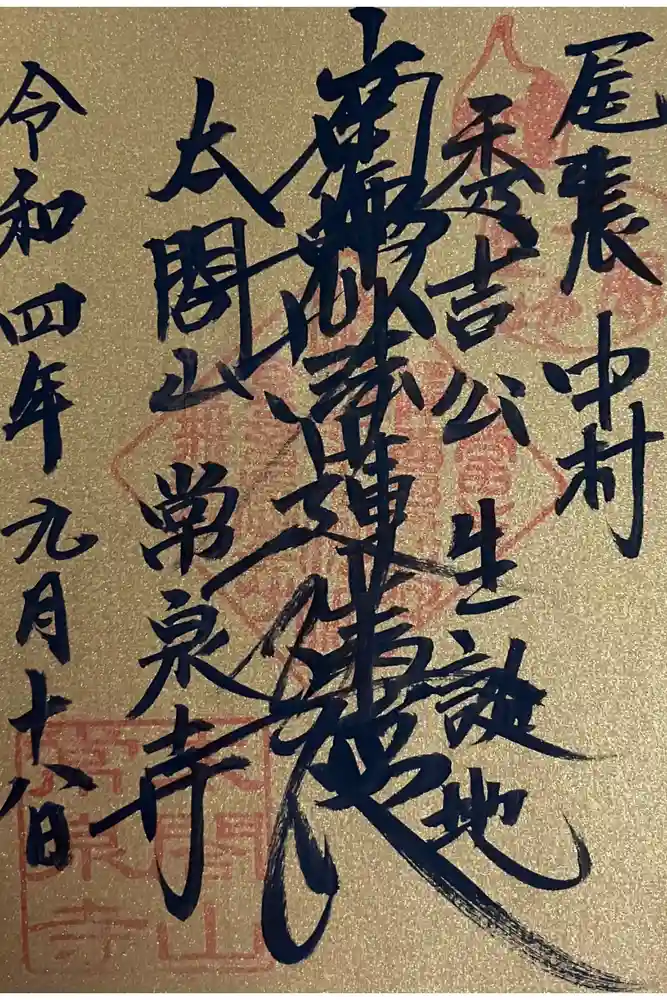 尾張中村
秀吉公生誕地
南無妙法蓮華経
太閤山常泉寺
令和四年九月十八日
太閤山
常泉寺